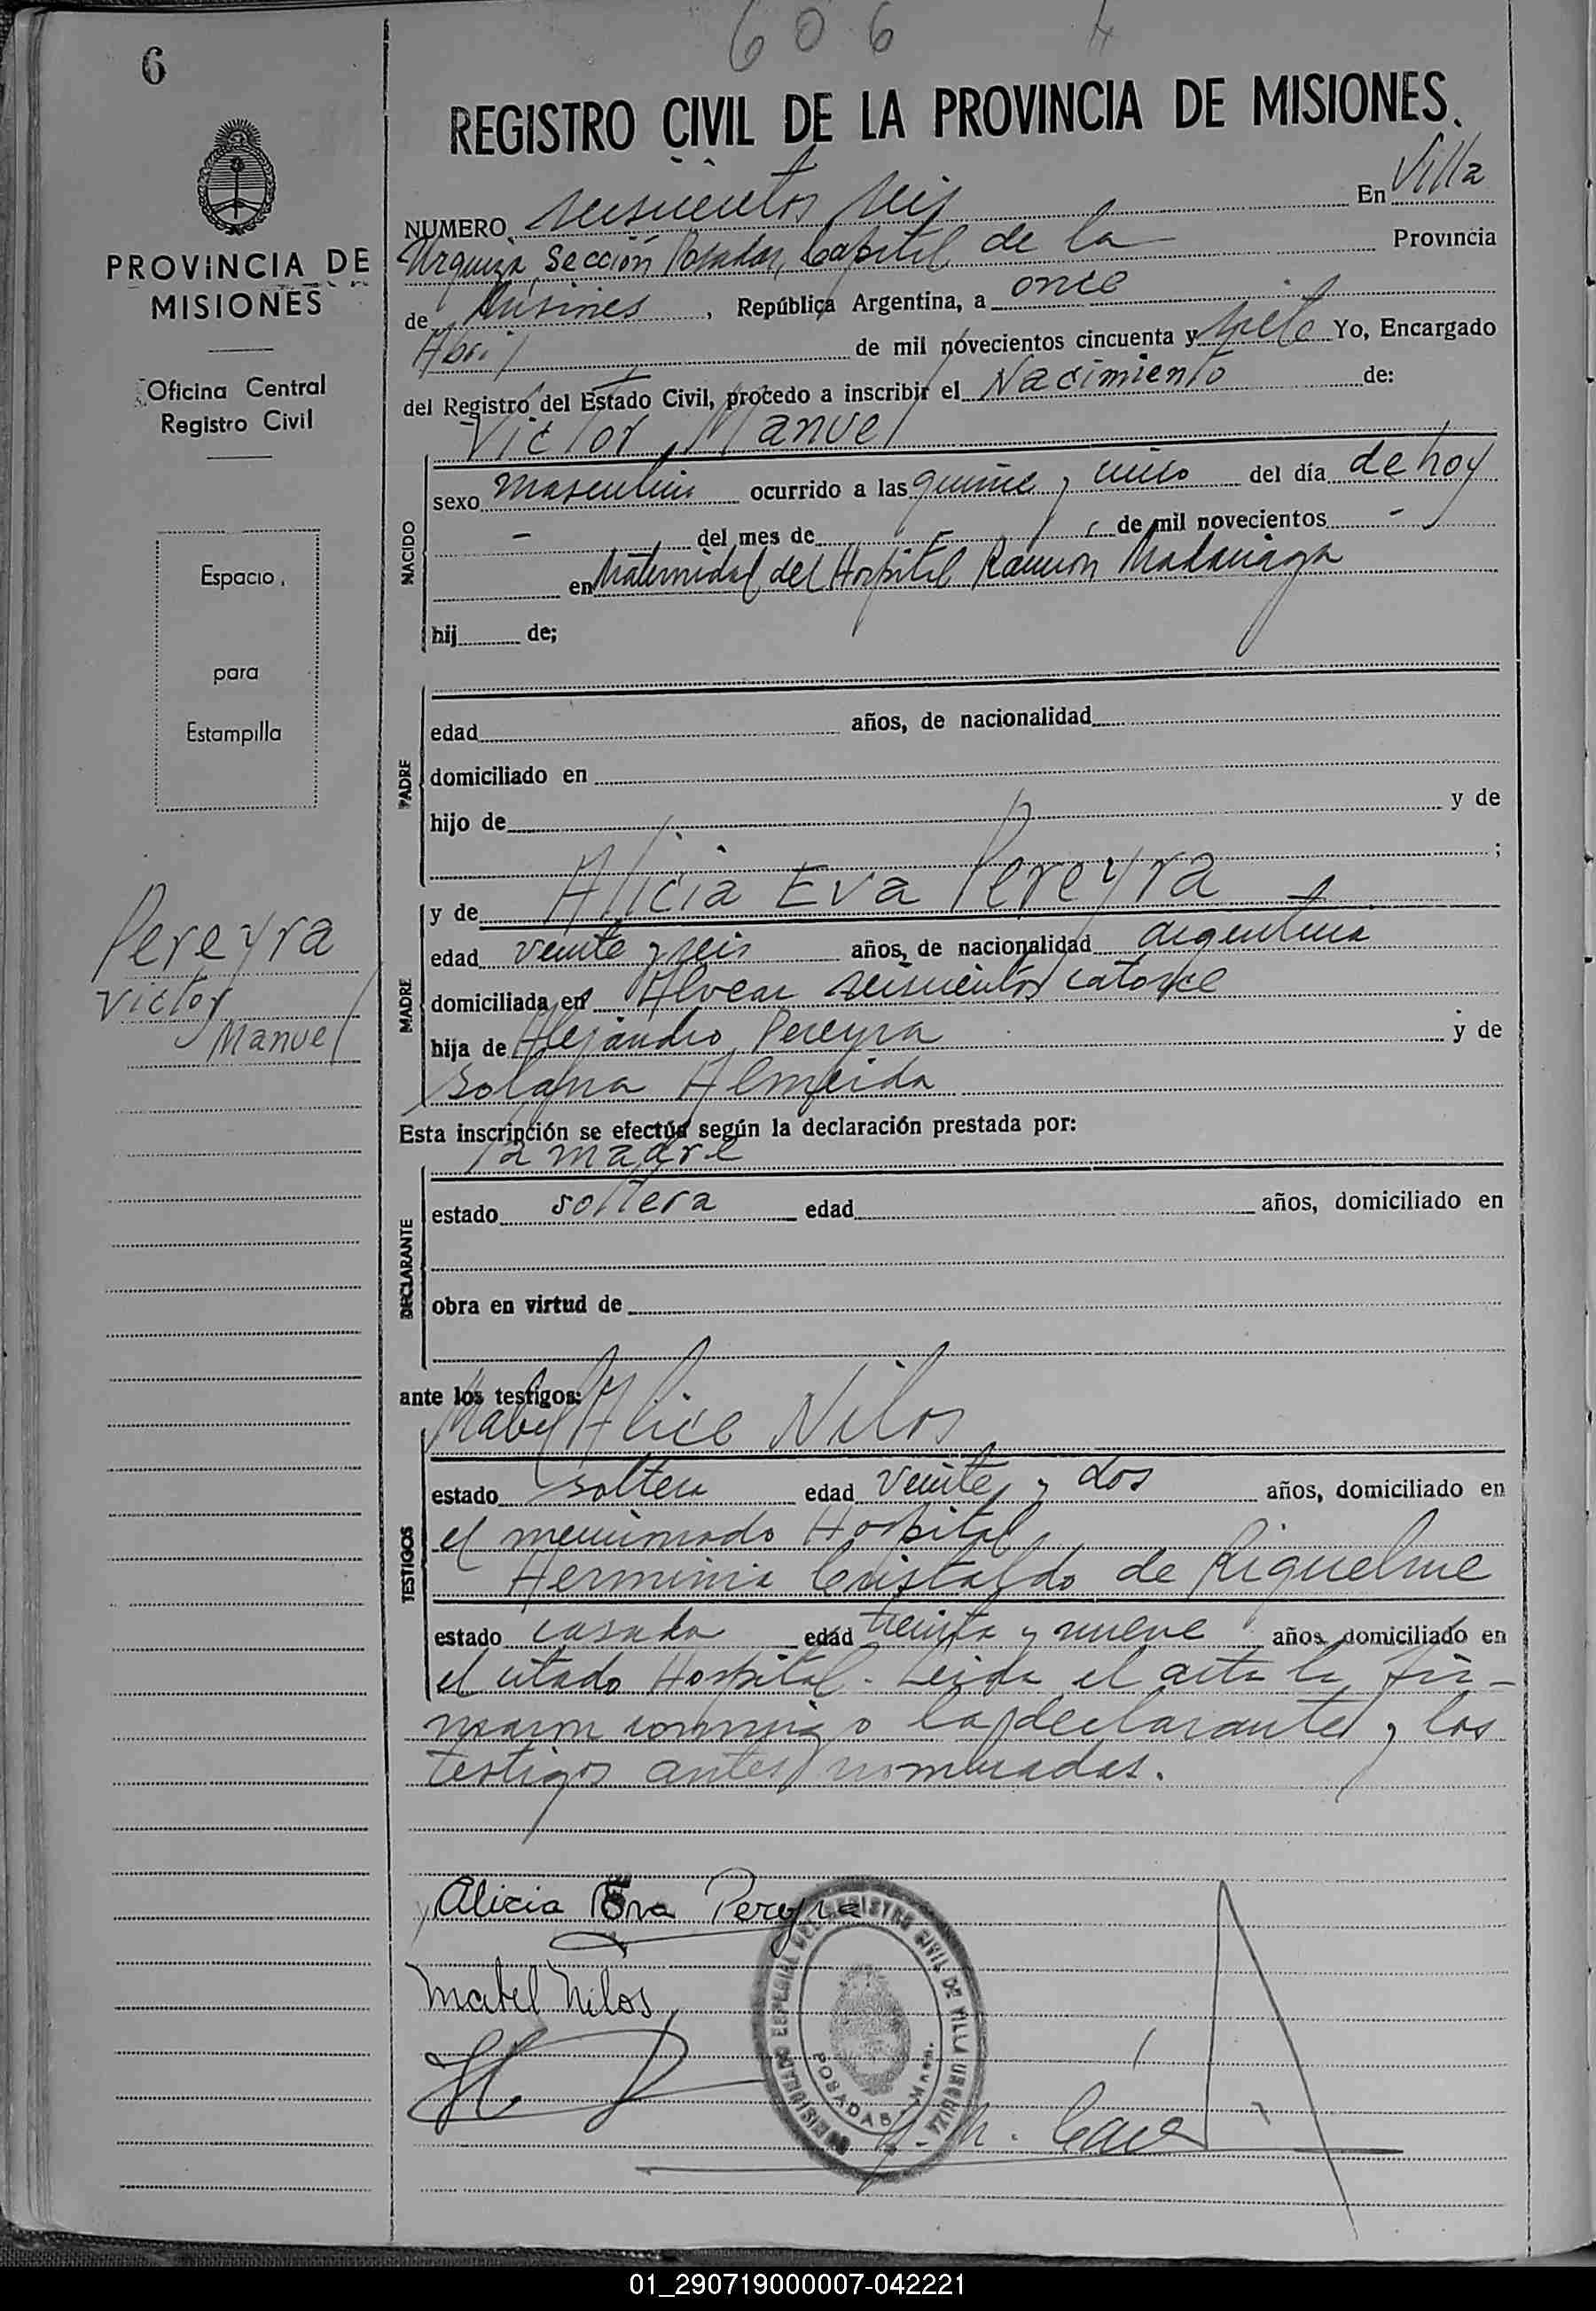 606
6
REGISTRO CIVIL DE LA PROVINCIA DE MISIONES.
PROVINCIA DE
MISIONES
Oficina Central
Registro Civil
Espacio
para
Estampilla
Pereyra
Victor
Manuel
NUMERO seiscientos seis En Villa
Urquiza, Sección Posadas, Capital de la Provincia
de Misiones, República Argentina, a once
Abril de mil novecientos cincuenta y siete Yo, Encargado
del Registro del Estado Civil, procedo a inscribir el Nacimiento de:
Victor Manuel
NACIDO
sexo masculino ocurrido a las quince y cinco del día de hoy
- del mes de - de mil novecientos -
en Maternidad del Hospital Ramón Madariaga
hij de;
PADRE
edad años, de nacionalidad
domiciliado en
hijo de y de
;
MADRE
y de Alicia Eva Pereyra
edad veinte y seis años, de nacionalidad argentina
domiciliada en Alvear seiscientos catorce
hija de Alejandro Pereyra y de
Solana Almeida
Esta inscripción se efectúa según la declaración prestada por:
la madre
DECLARANTE
estado soltera edad años, domiciliado en
obra en virtud de
ante los testigos:
Mabel Alice Nilos
TESTIGOS
estado soltera edad veinte y dos años, domiciliado en
el mencionado Hospital
Herminia Cristaldo de Riquelme
estado casada edad treinta y nueve años domiciliado en
el citado Hospital. Leída el acta la fir-
maron conmigo la declarante y los
testigos antes nombradas.
Alicia Eva Pereyra
Mabel Nilos
REGISTRO CIVIL DE VILLA URQUIZA
POSADAS
01_290719000007-042221